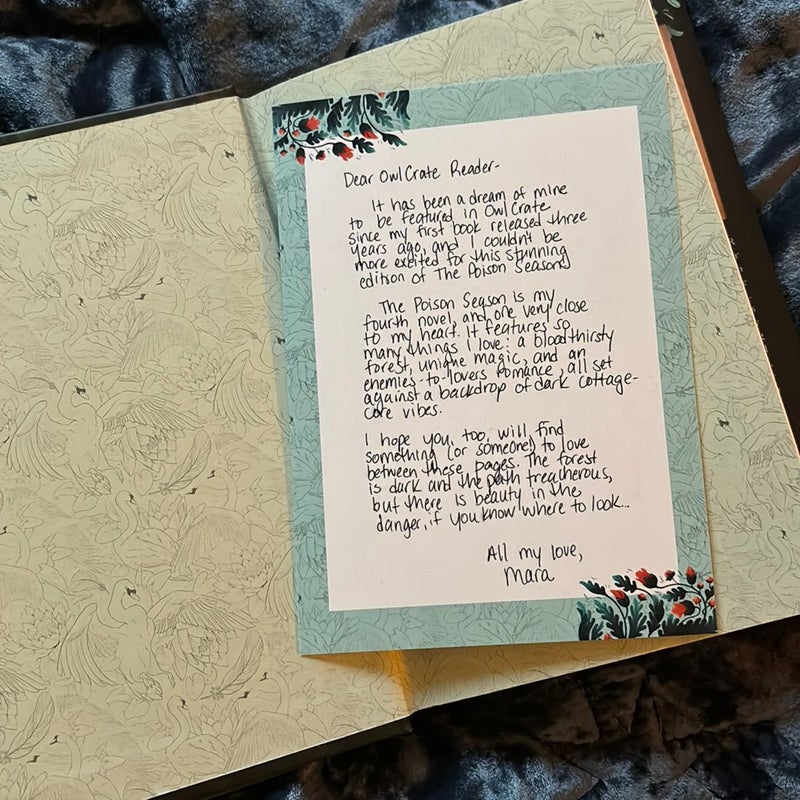 Dear OwlCrate Reader-
It has been a dream of mine
to be featured in OwlCrate
since my first book released three
years ago, and I couldn't be
more excited for this stunning
edition of The Poison Season!
The Poison Season is my
fourth novel, and one very close
to my heart. It features so
many things I love: a bloodthirsty
forest, unique magic, and an
enemies-to-lovers romance, all set
against a backdrop of dark cottage-
core vibes.
I hope you, too, will find
something (or someone!) to love
between these pages. The forest
is dark and the path treacherous,
but there is beauty in the
danger, if you know where to look...
All my love,
Mara